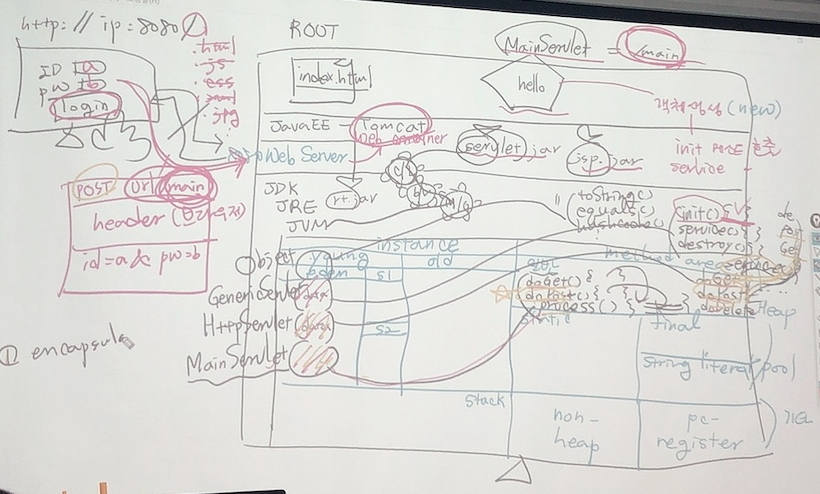 http://ip:8080/
.html
.js
.css
.jpg
ID a
pw b
login
POST url /main
header
id=a& pw=b
① encapsula
ROOT
MainServlet = /main
index.html
hello
객체생성 (new)
JavaEE - Tomcat
Web container
Web Server
servlet.jar
jsp.jar
init 메소드 호출
service
JDK
JRE
JVM
rt.jar
toString()
equals()
hashcode()
init()
service() }
destroy() }
instance
method area
Object
young
old
eden
S1
S2
GenericServlet
HttpServlet
MainServlet
doGet() {
doPost() {
process() {
static
final
Heap
String literal pool
stack
non-heap
pc-register